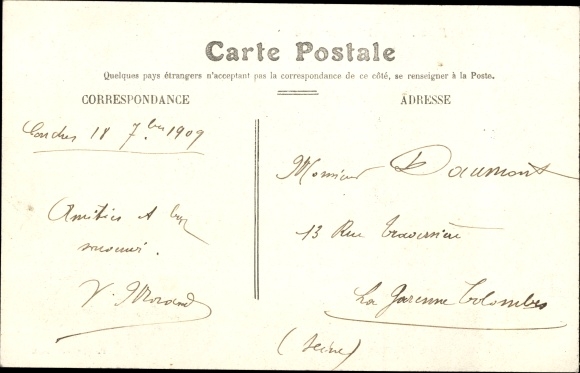 Carte Postale
Quelques pays étrangers n'acceptant pas la correspondance de ce côté, se renseigner à la Poste.
CORRESPONDANCE
Londres 18 7bre 1909
Amitiés et bon
souvenir.
V. Morand
ADRESSE
Monsieur Daumont
13 Rue Traversière
La Garenne Colombes
(Seine)